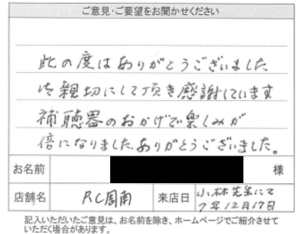 ご意見・ご要望をお聞かせください
此の度はありがとうございました
御親切にして頂き感謝しています
補聴器のおかげで楽しみが
倍になりました。ありがとうございました。
お名前 様
店舗名 RC周南 来店日 小林先生にて
7年12月17日
記入いただいたご意見は、お名前を除き、ホームページでご紹介させて
いただく場合があります。